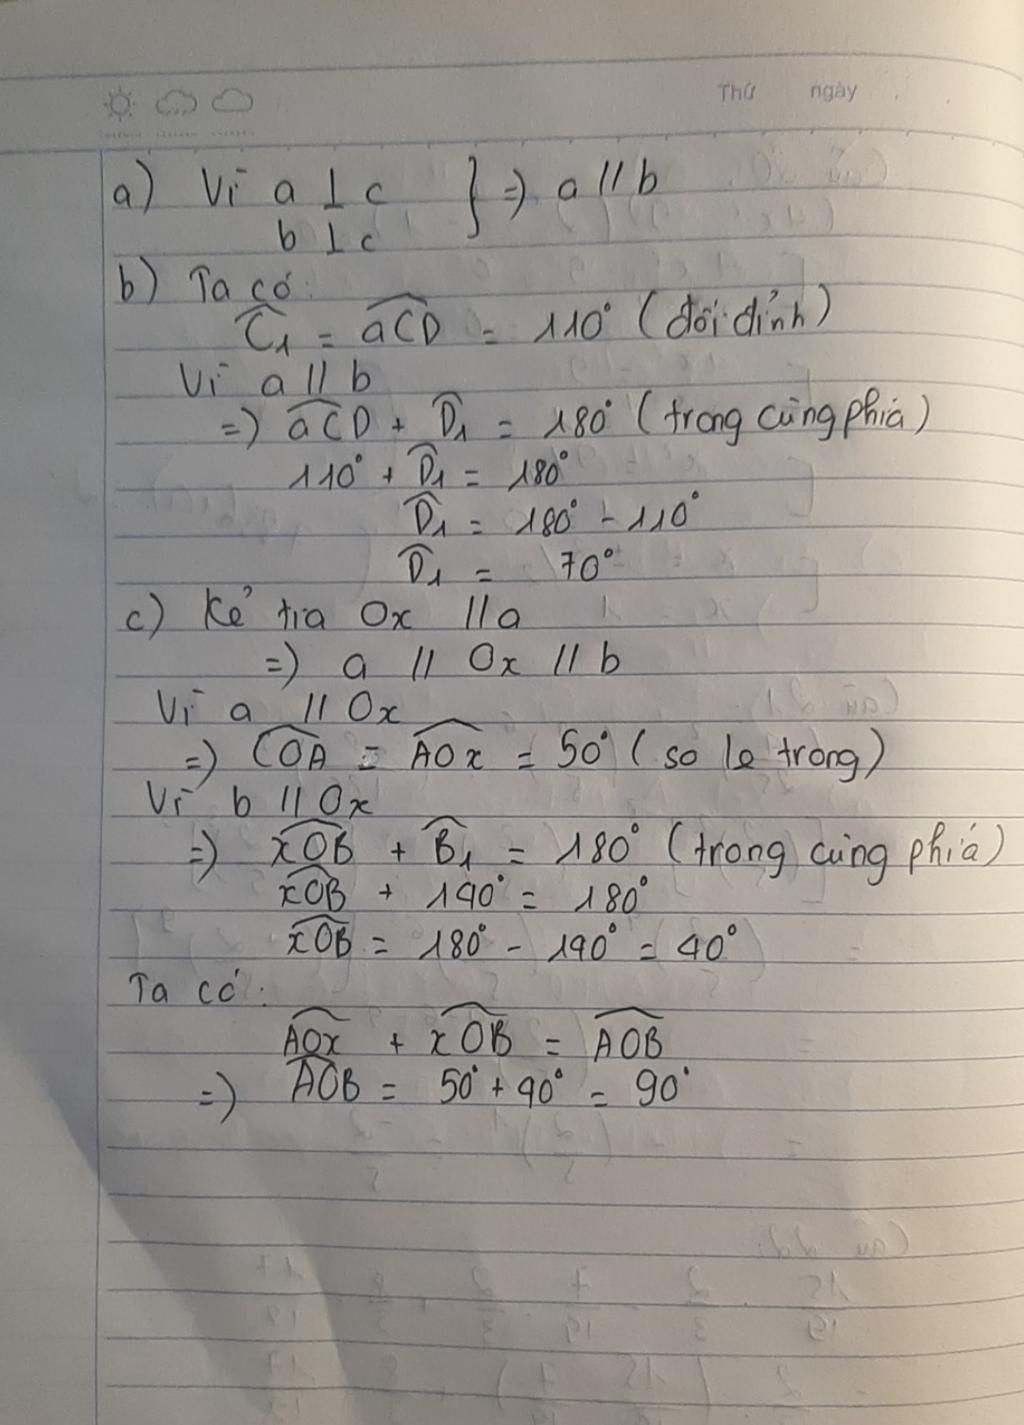 Thứ ngày
a) Vì a ⊥ c } => a // b
b ⊥ c
b) Ta có:
Ĉ₁ = aCD̂ = 110° (đối đỉnh)
Vì a // b
=) aCD̂ + D̂₁ = 180° (trong cùng phía)
110° + D̂₁ = 180°
D̂₁ = 180° - 110°
D̂₁ = 70°
c) Kẻ tia Ox // a
=) a // Ox // b
Vì a // Ox
=) COÂ = AOx̂ = 50° (so le trong)
Vì b // Ox
=) xOB̂ + B̂₁ = 180° (trong cùng phía)
xOB̂ + 140° = 180°
xOB̂ = 180° - 140° = 40°
Ta có:
AOx̂ + xOB̂ = AOB̂
=) AOB̂ = 50° + 40° = 90°